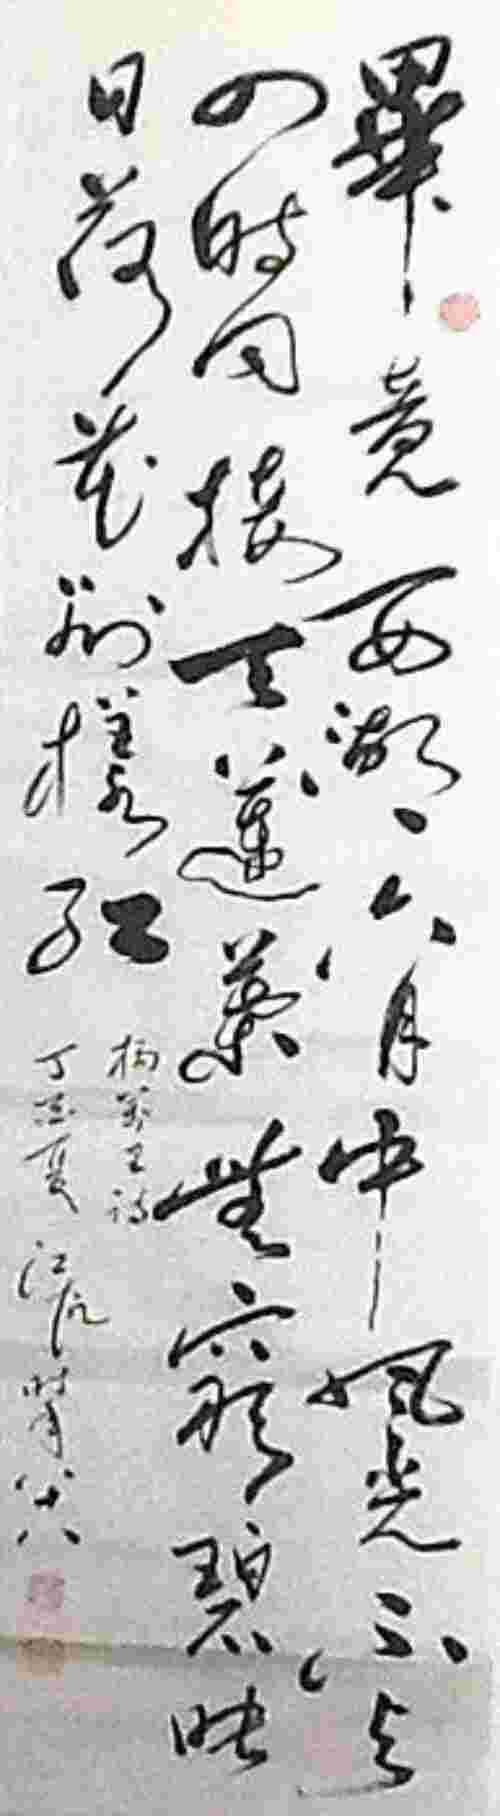 畢竟西湖六月中風光不与
四時同接天蓮葉無窮碧映
日荷花別樣紅
楊萬里詩
丁亥夏 時年